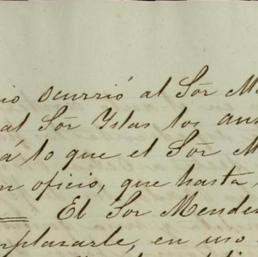 io ocurrió al Sōr M
al Sōr Yslas los au
á lo que el Sōr M
n oficio, que hasta,
= El Sor Mende
rplazarle, en uso